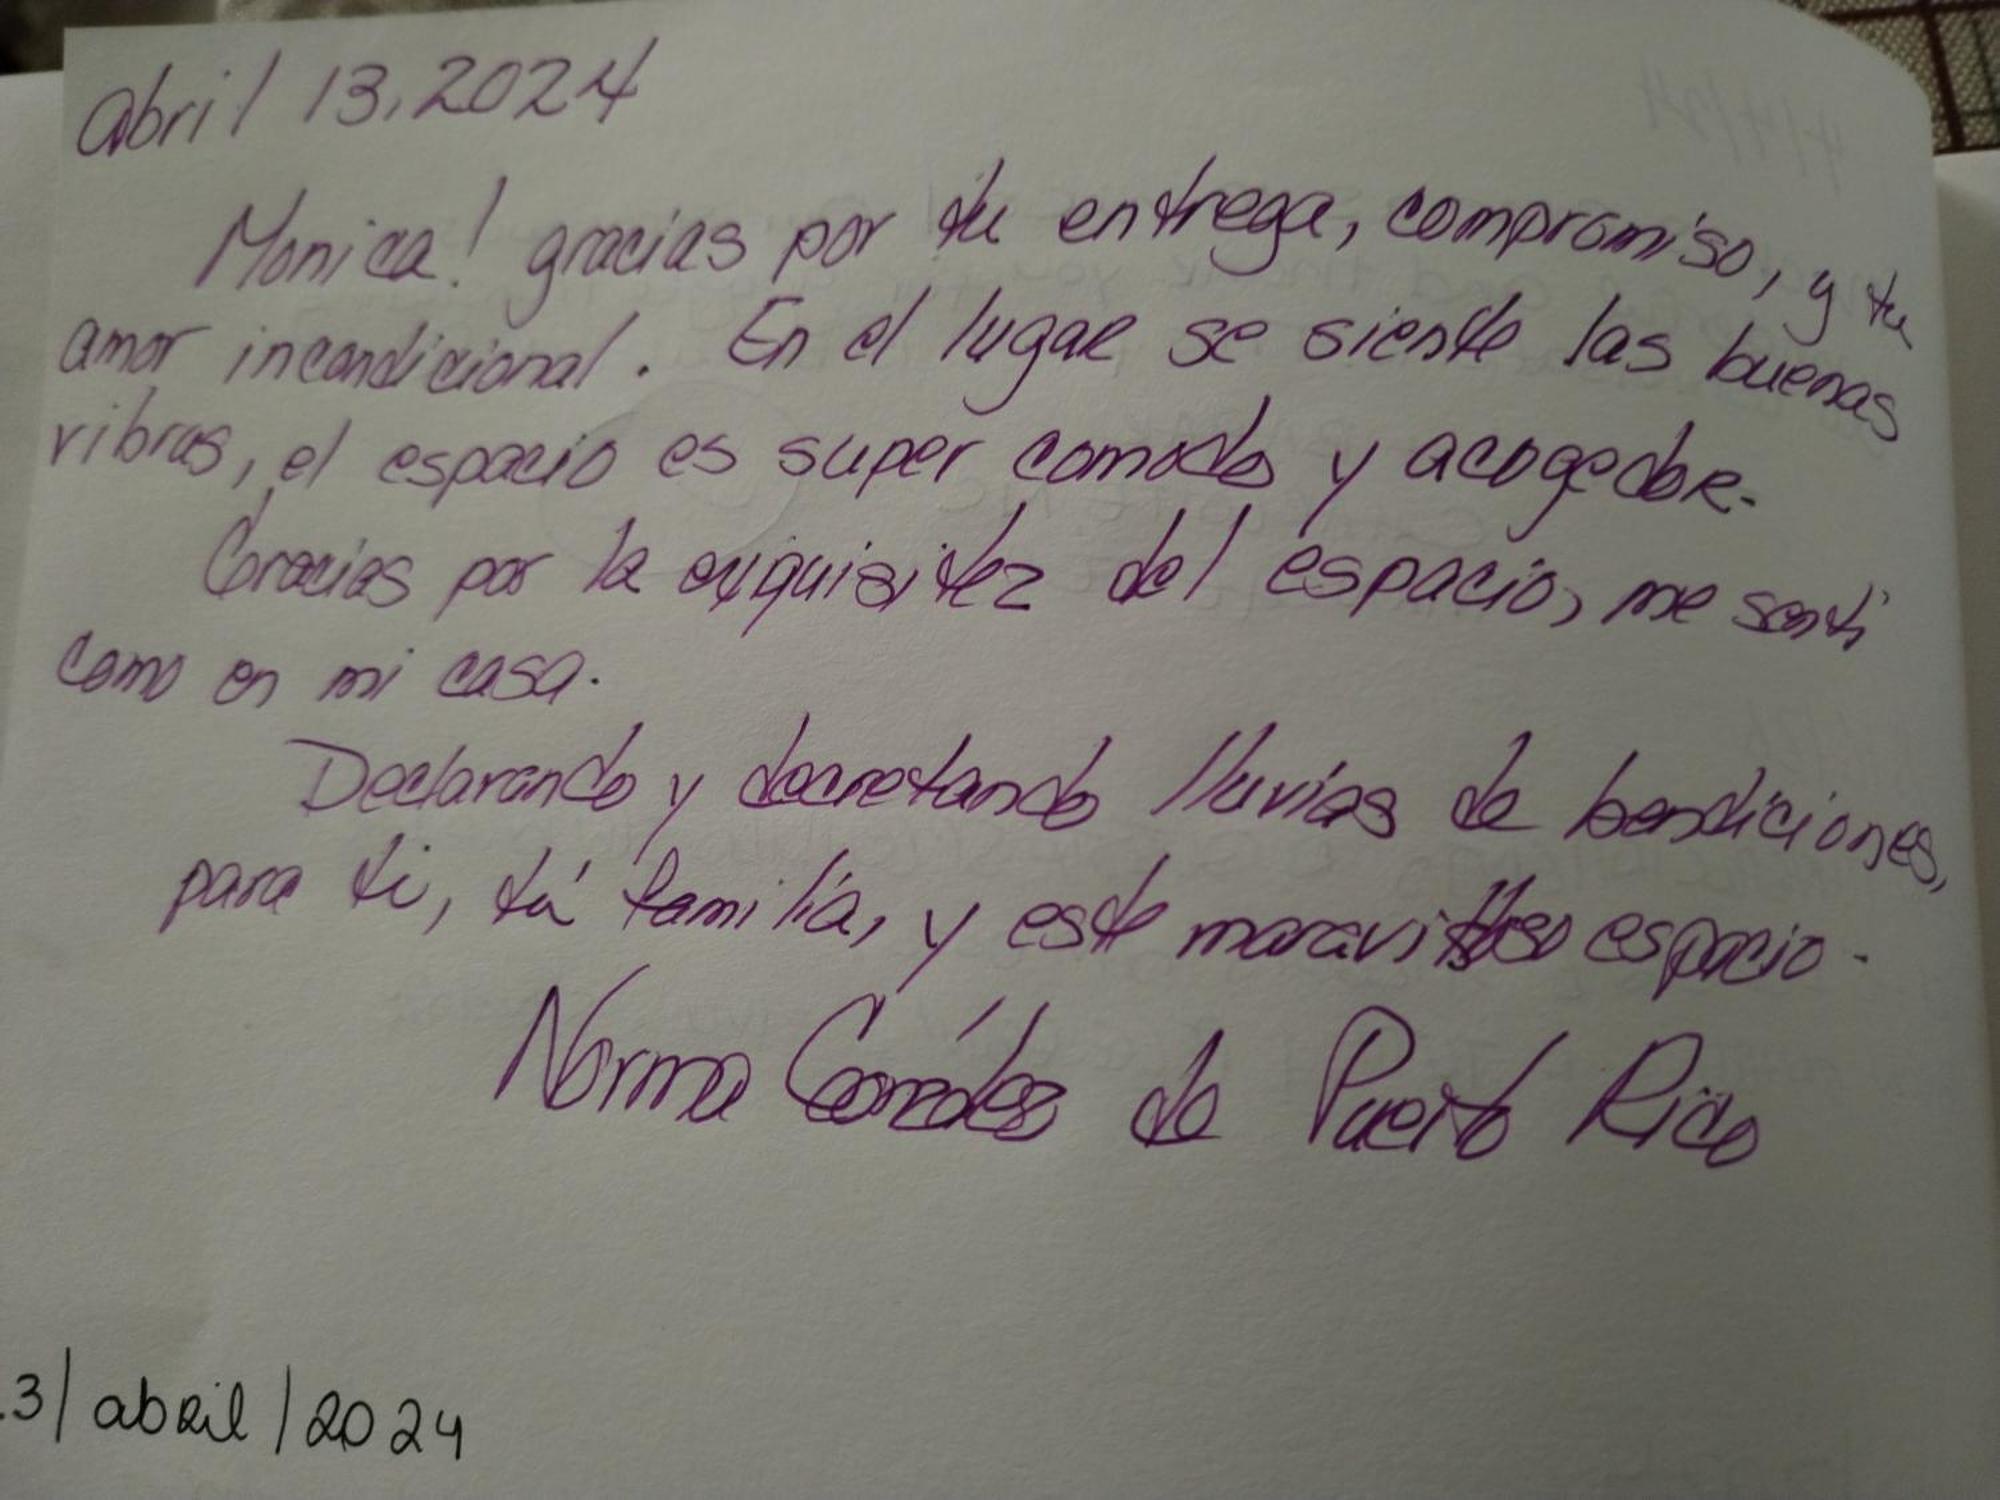 Abril 13, 2024
Monica! gracias por tu entrega, compromiso, y tu
amor incondicional. En el lugar se siente las buenas
vibras, el espacio es super comodo y acogedor.
Gracias por la exquisitez del espacio, me sentí
como en mi casa.
Declarando y decretando lluvias de bendiciones,
para ti, tú familia, y este maravilloso espacio.
Norma de Puerto Rico
3/abril/2024